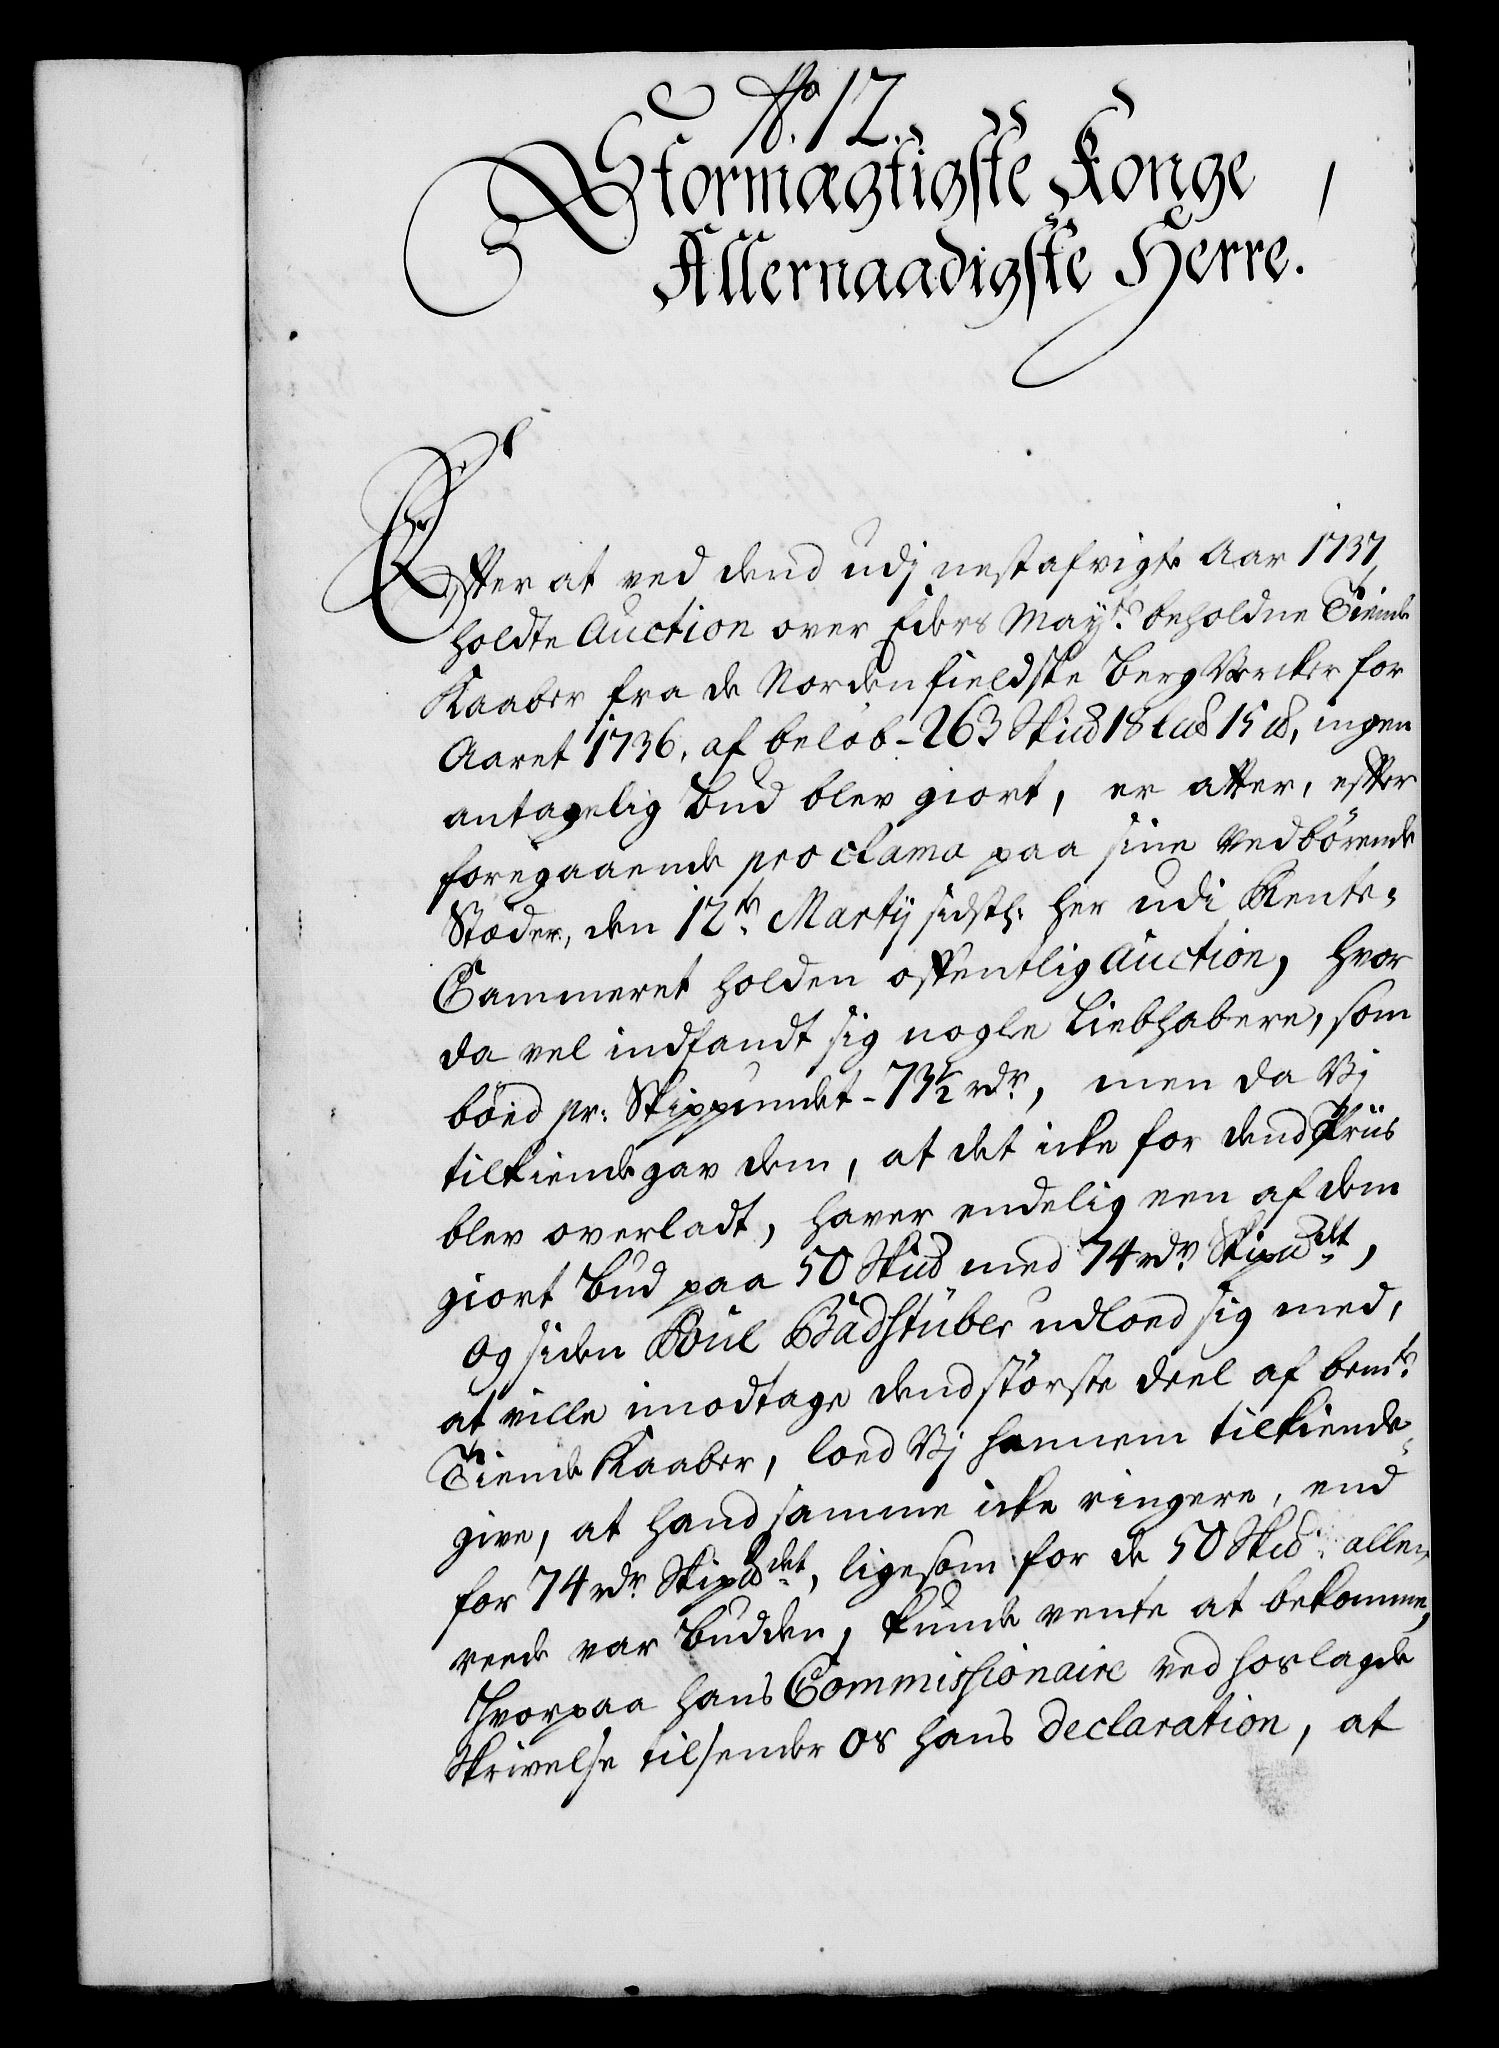 No. 12.
Stormægtigste Konge
Allernaadigste Herre.
Efter at ved dend udj nestafvigte Aar 1737
holdte Auction over Eders Mayts. beholdne Tiende
Kaaber fra de Nordenfieldske BergVercker for
Aaret 1736, af beløb - 263 Sk℔ 18 L℔ 15 ℔, ingen
antagelig Bud blev giort, er atter, efter
foregaaende proclama paa sine Vedbörende
Stæder, den 12te Martij sidstl: her udi Rente-
Cammeret holden offentlig Auction, hvor
da vel indfandt sig nogle Liebhabere, som
böed pr: Skippundet - 73½ rdr, men da Vj
tilkiendegav dem, at det icke for dend Priis
blev overladt, haver endelig een af dem
giort Bud paa 50 Sk℔ med 74 rdr Skip℔det,
og siden Poul Badstüber udloed sig med,
at ville imodtage dend störste deel af bemte
Tiende Kaaber, loed Vj hannem tilkiende-
give, at hand samme icke ringere, end
for 74 rdr Skip℔det, ligesom for de 50 Sk℔: alle
reede var Budden, kunde vente at bekomme,
Hvorpaa hans Commissionaire ved hoslagde
Skrivelse tilsender os hans declaration, at